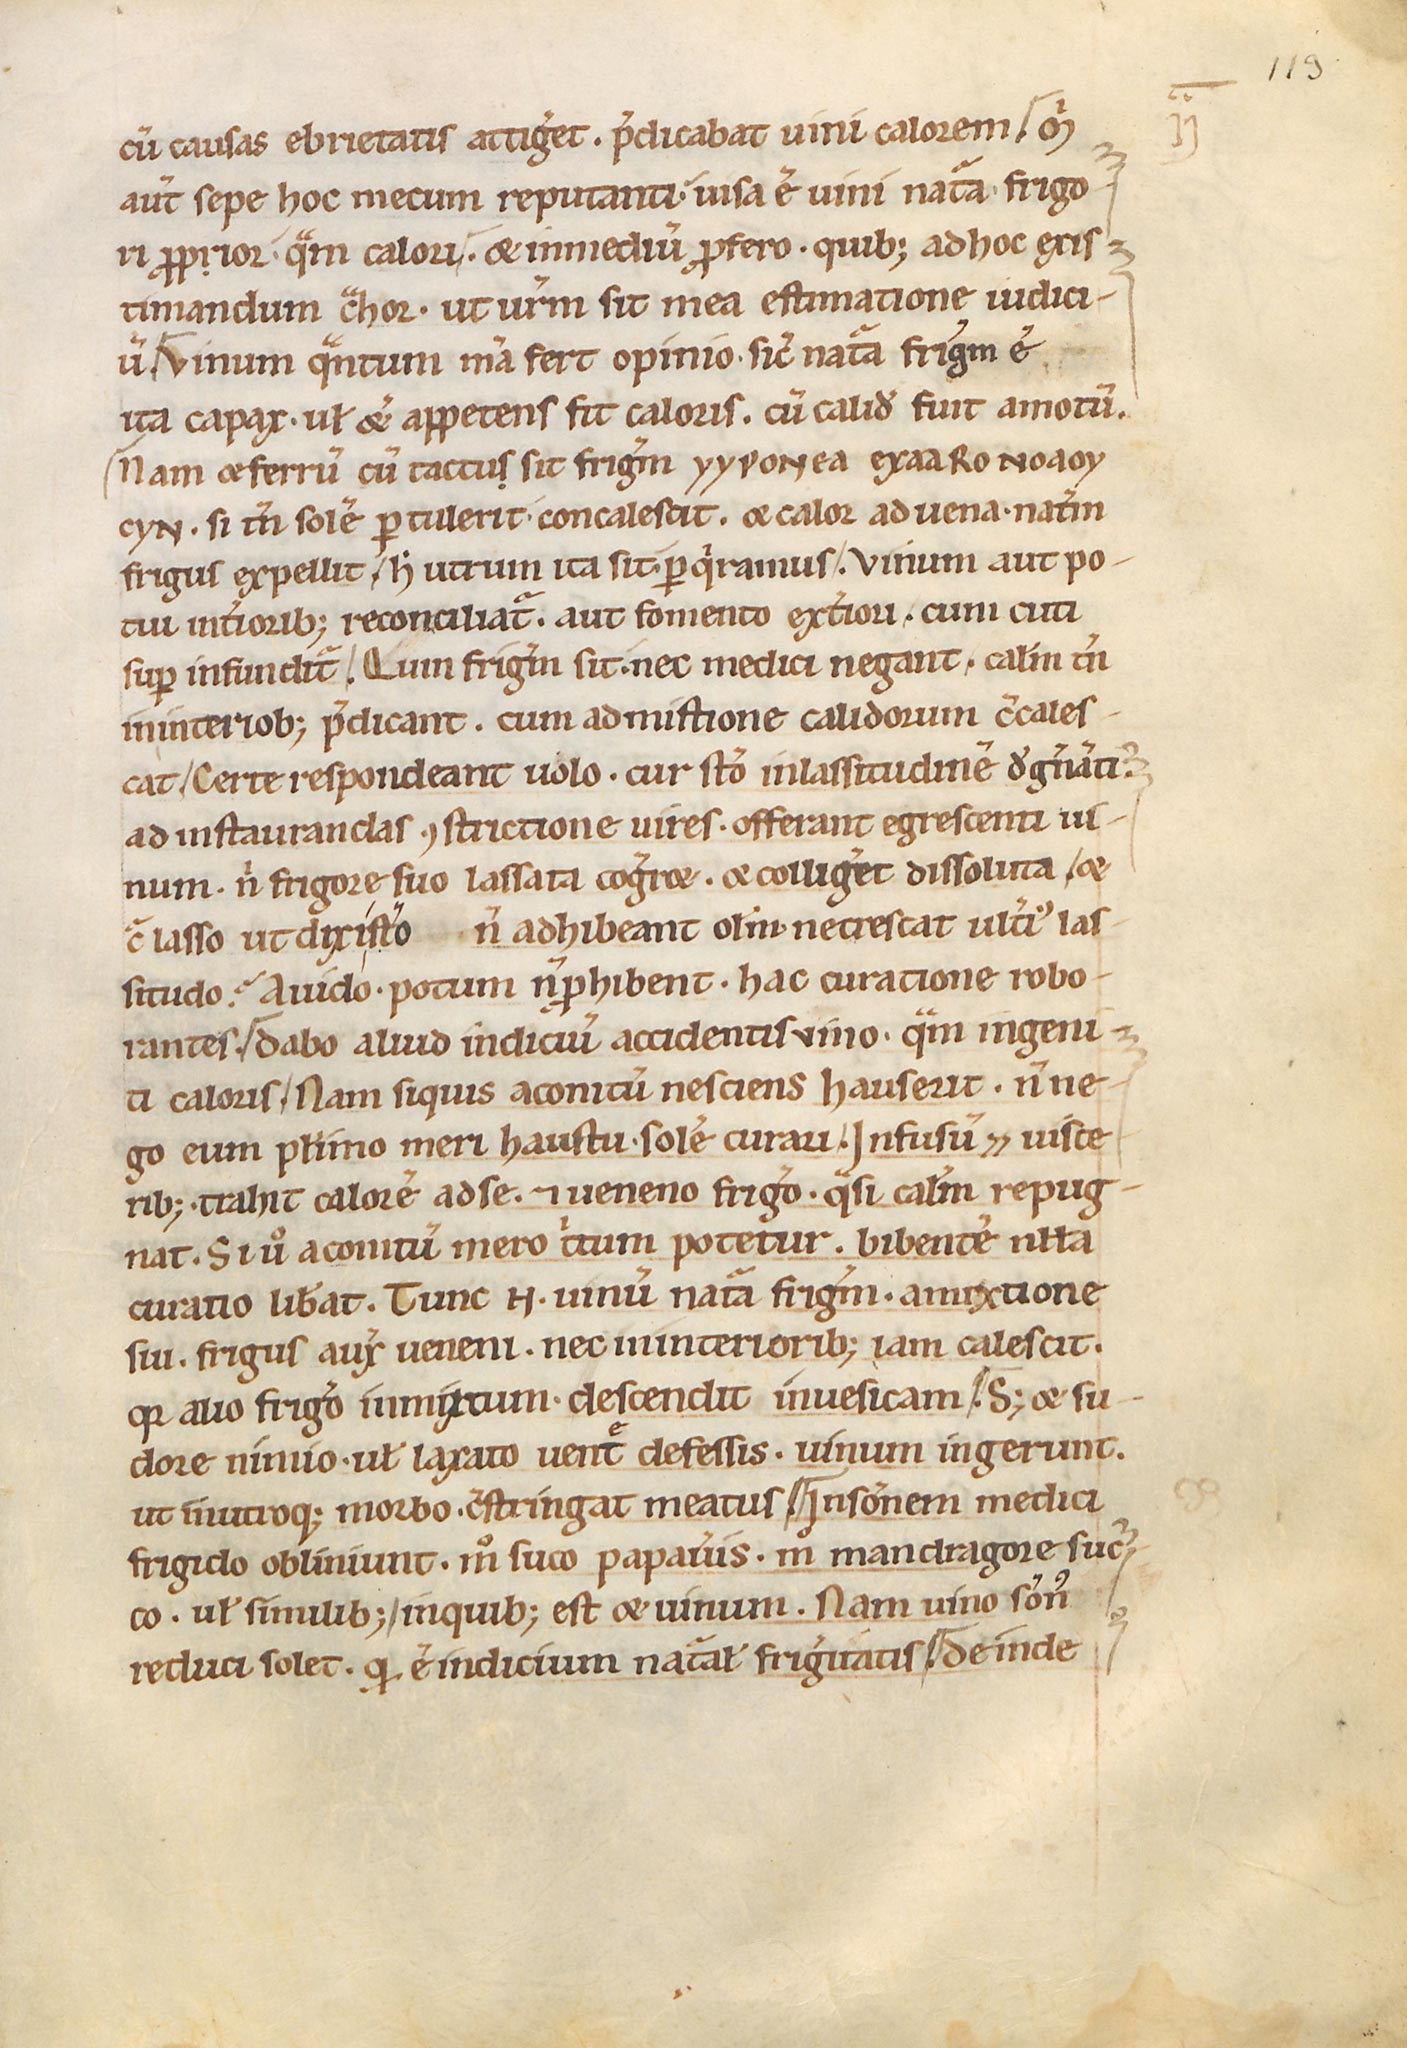 119
cū causas ebrietatis attiḡet . p̄dicabat uini calorem / . m̊
aūt sepe hoc mecum reputanti · uisa ē uini nat̄a · frigo
ri p̱prior · qᵃm calori / . & inmediū ꝓfero . quib; ad hoc exis
timandum t̄hor . ut ur̄m sit mea estimatione iudici-
ū / Vinum qᵃntum m̄a fert opinio · sic̄ nat̄a friḡm ē
ita capax · uł &̄ appetens fit caloris . cū calid̄ fuit amotū .
Nam & ferrū cū tactus sit friḡm γγρονεα εχααRο νοαογ
cyν . si tn̄ solē ꝑtulerit · concalescit . & calor aduena · nat̄m
frigus expellit / h̄ utrum ita sit · ꝑqⁱramus / . Vinum aut po-
tui int̄iorib; reconciliat̄ . aut fomento ext̄iori . cum cuti
suꝑ infundit̄ / . Cum friḡm sit · nec medici negant . cal̄m tn̄
ininteriob; p̄dicant . cum admistione calidorum c̄cales-
cat / Certe respondeant uolo . cur sto̅ inlassitudinē d̄gn̄ati
ad instaurandas ꝯstrictione uires . offerant egrescenti ui-
num . n̄ frigore suo lassata coḡr& . & colliḡet dissoluta / &
c̄ lasso ut dixi sto̅ n̄ adhibeant olīn · necrescat ult̄i᷒ las-
situdo . Auido · potum n̄ꝓhibent . hac curatione robo-
rantes . / Dabo aliud indiciū accidentis uino · qᵃm ingeni-
ti caloris / Nam siquis aconitū nesciens hauserit . n̄ ne-
go eum pl̄imo meri haustu · solē curari / . Infusū · uisce
rib; · trahit calorē adse . ⁊ ueneno friḡo . qᵃsi cal̄m repug-
nat . Si uͦ aconitū mero tⁱtum potetur . bibentē nłła
curatio lib̄at . Tunc H . uinū nat̄a friḡm . amixtione
sui . frigus aux̄ ueneni . nec ininteriorib; iam calescit .
qꝛ alio friḡo inmixtum · descendit inuesicam / . S; & su-
dore nimio · uł laxato uentᵉ defessis . uinum ingerunt .
ut inutroq; morbo . c̄stringat meatus / . Inso̅nem medici
frigido obliniunt . mͦ suco papau̅is . mͦ mandragore suc-
co . uł similib; / inquib; est & uinum . Nam uino so̅n᷒
reduci solet . qꝺ ē indicium nat̄ał friḡitatis / . Deinde